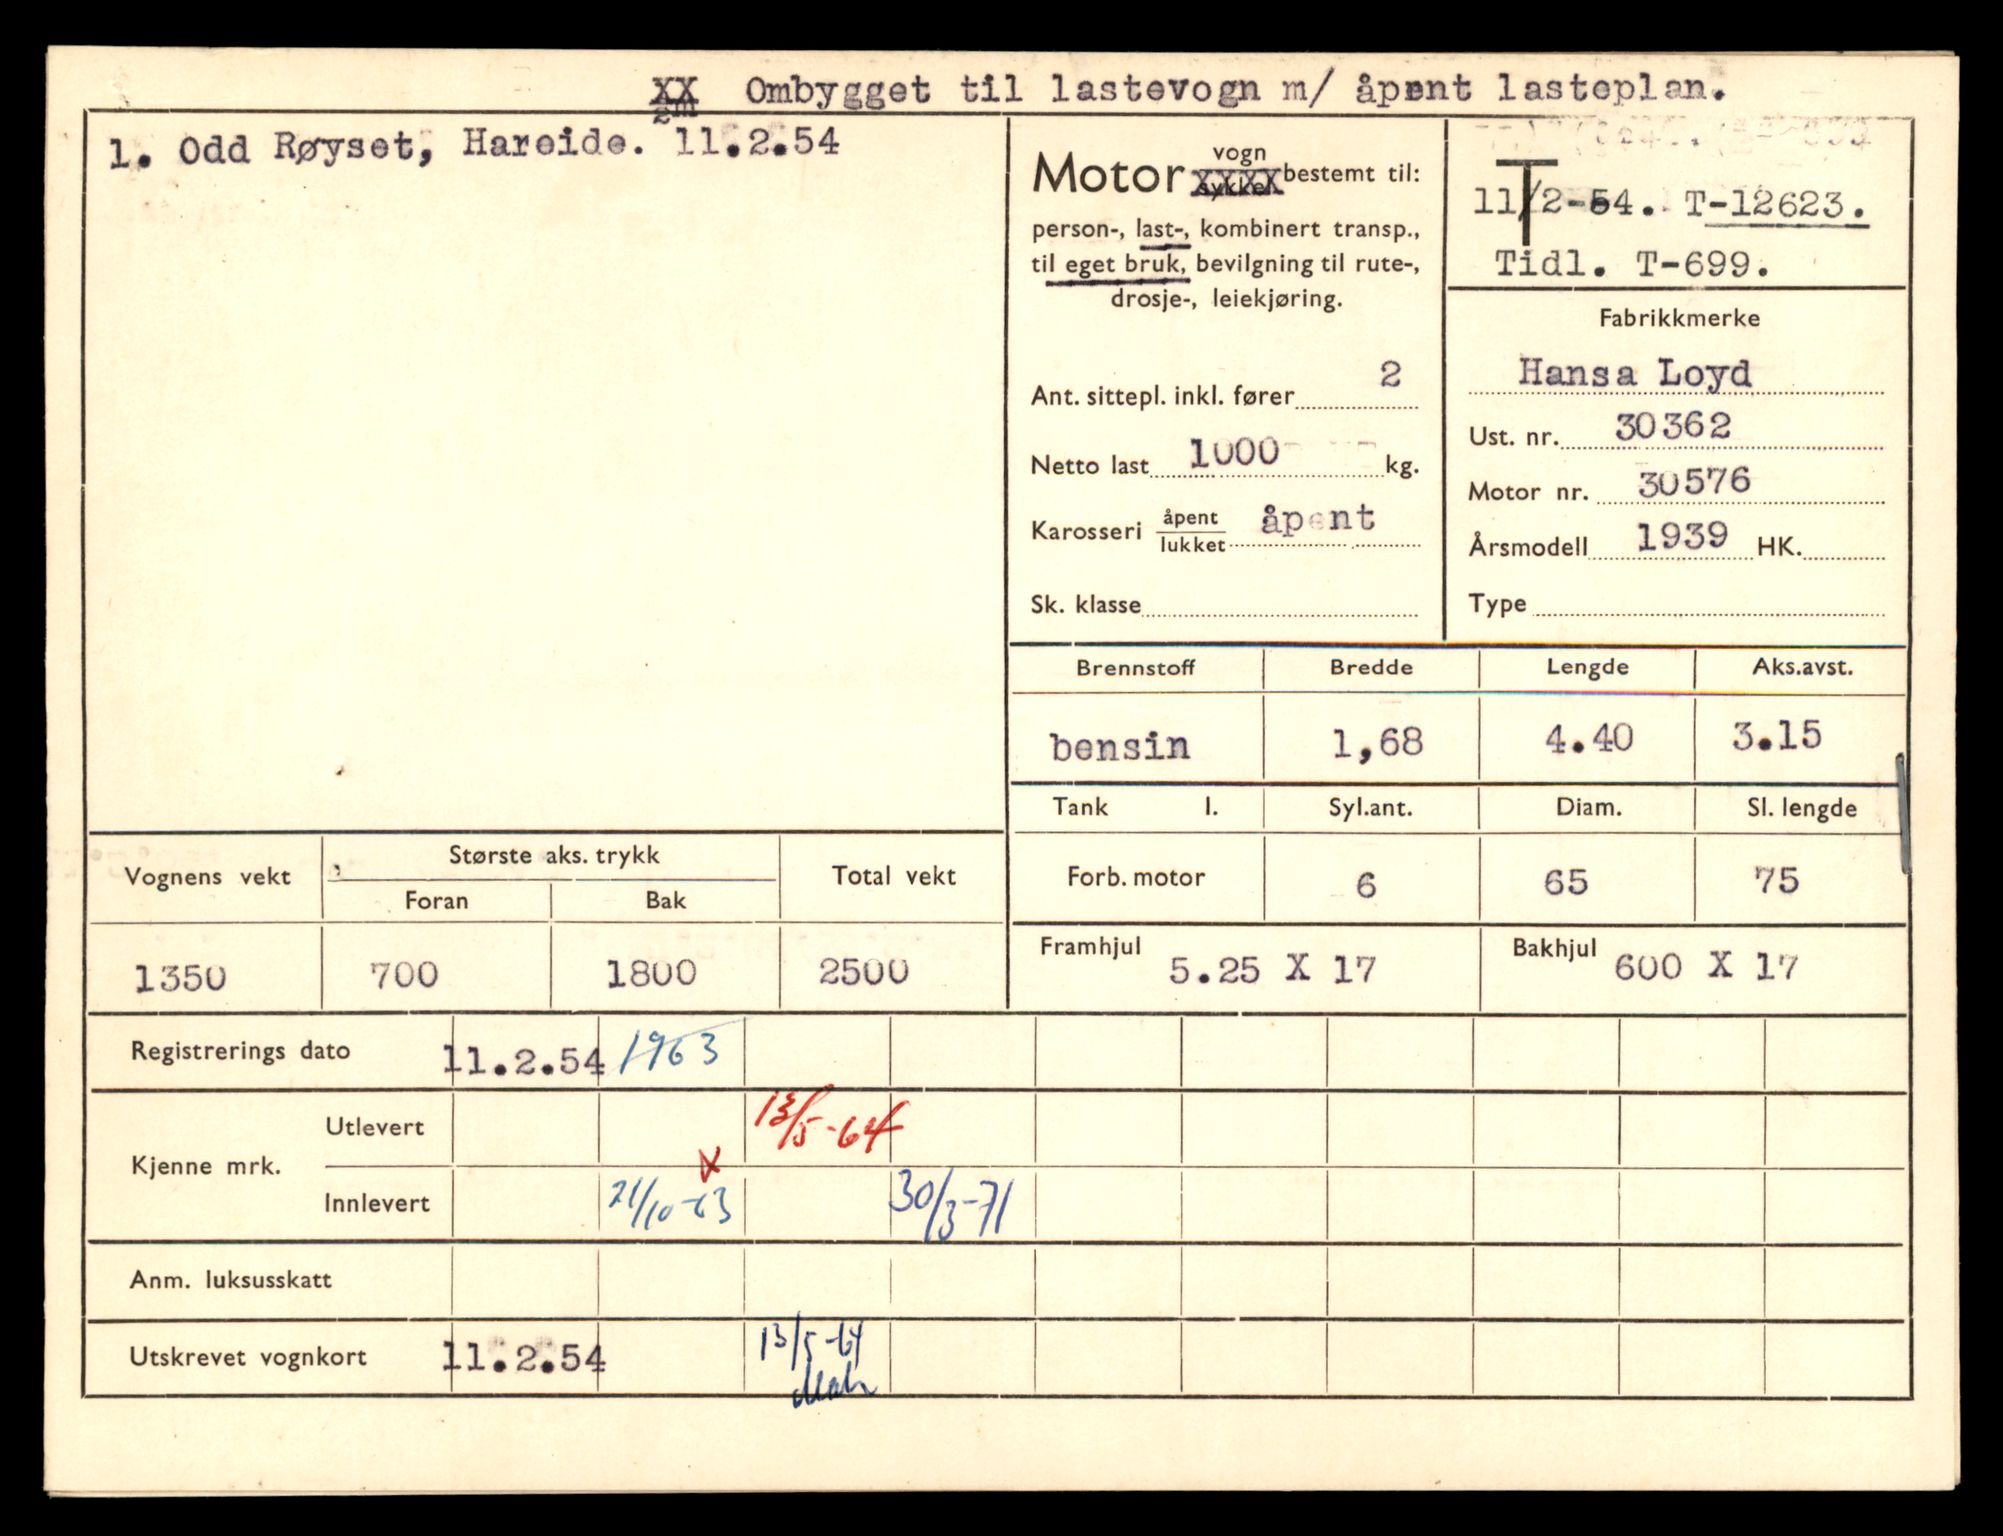 Ombygget til lastevogn m/ åpent lasteplan.
1. Odd Røyset, Hareide. 11.2.54
Motor vogn bestemt til:
sykkel
person-, last-, kombinert transp.,
til eget bruk, bevilgning til rute-,
drosje-, leiekjøring.
Ant. sittepl. inkl. fører 2
Netto last 1000 kg.
Karosseri åpent åpent
lukket
Sk. klasse
T
11/2-54. T-12623.
Tidl. T-699.
Fabrikkmerke
Hansa Loyd
Ust. nr. 30362
Motor nr. 30576
Årsmodell 1939 HK.
Type
Brennstoff Bredde Lengde Aks.avst.
bensin 1,68 4.40 3.15
Tank l. Syl.ant. Diam. Sl. lengde
Forb. motor 6 65 75
Framhjul 5.25 X 17 Bakhjul 600 X 17
Vognens vekt Største aks. trykk Total vekt
Foran Bak
1350 700 1800 2500
Registrerings dato 11.2.54 1963
Kjenne mrk. Utlevert 13/5-64
Innlevert 21/10-63 30/3-71
Anm. luksusskatt
Utskrevet vognkort 11.2.54 13/5-64